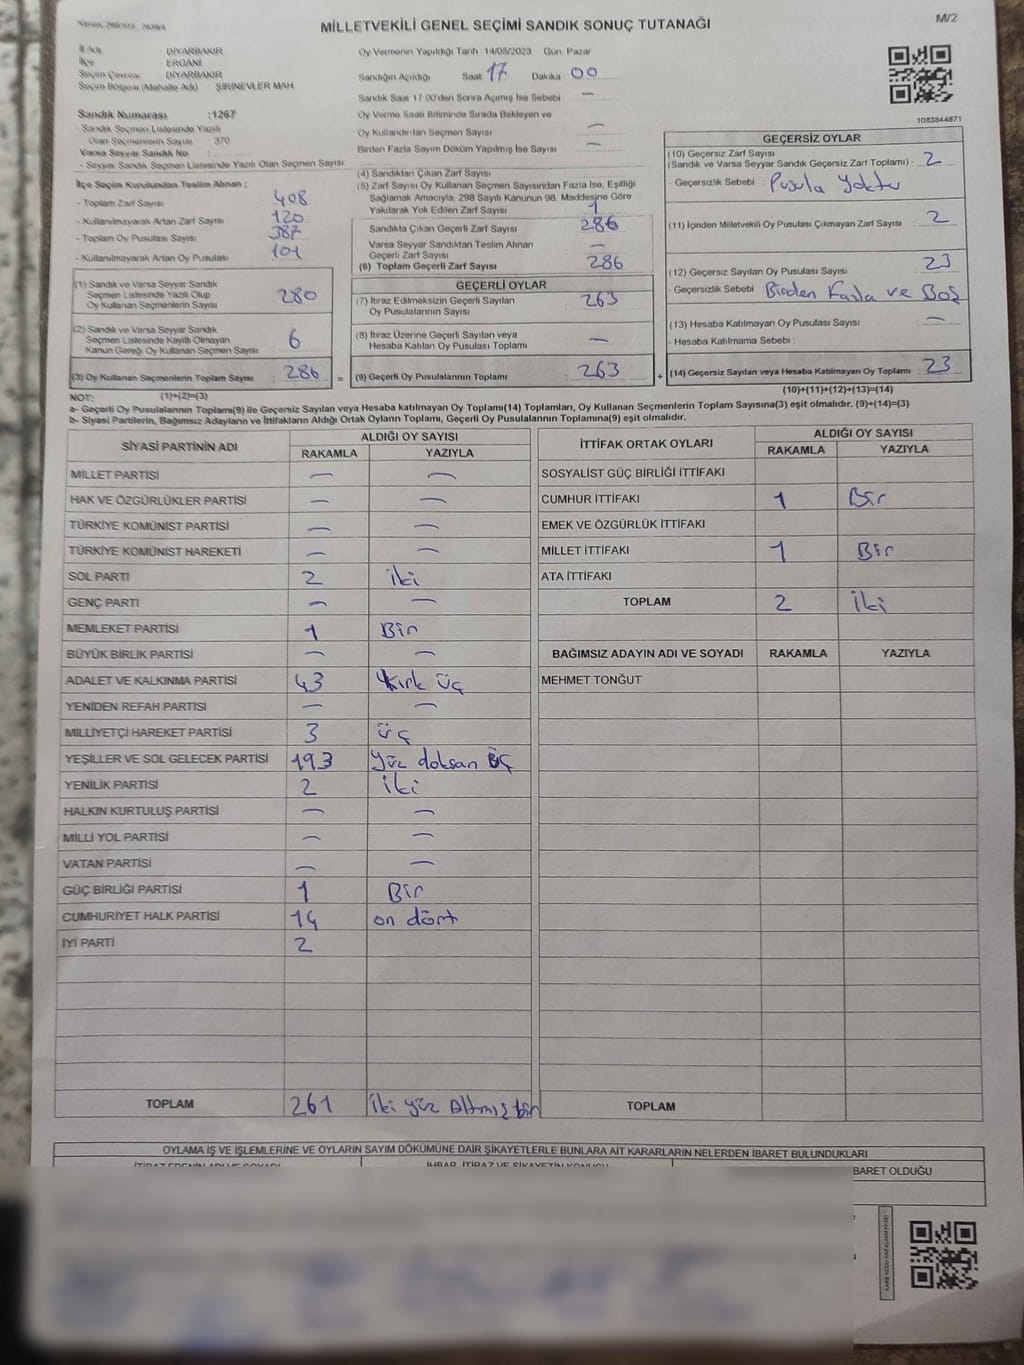 MİLLETVEKİLİ GENEL SEÇİMİ SANDIK SONUÇ TUTANAĞI
M/2
İl Adı : DİYARBAKIR
İlçe : ERGANİ
Seçim Çevresi : DİYARBAKIR
Seçim Bölgesi (Mahalle Adı) : ŞİRİNEVLER MAH
Sandık Numarası :1267
- Sandık Seçmen Listesinde Yazılı
Olan Seçmenlerin Sayısı : 370
Varsa Seyyar Sandık No :
- Seyyar Sandık Seçmen Listesinde Yazılı Olan Seçmen Sayısı :
İlçe Seçim Kurulundan Teslim Alınan ;
- Toplam Zarf Sayısı : 408
- Kullanılmayarak Artan Zarf Sayısı : 120
- Toplam Oy Pusulası Sayısı : 387
- Kullanılmayarak Artan Oy Pusulası : 101
(1) Sandık ve Varsa Seyyar Sandık
Seçmen Listesinde Yazılı Olup
Oy Kullanan Seçmenlerin Sayısı : 280
(2) Sandık ve Varsa Seyyar Sandık
Seçmen Listesinde Kayıtlı Olmayan
Kanun Gereği Oy Kullanan Seçmen Sayısı : 6
(3) Oy Kullanan Seçmenlerin Toplam Sayısı : 286 =
Oy Vermenin Yapıldığı Tarih : 14/05/2023 Gün: Pazar
Sandığın Açıldığı Saat : 17 Dakika : 00
Sandık Saat 17:00'den Sonra Açılmış İse Sebebi : —
Oy Verme Saati Bitiminde Sırada Bekleyen ve
Oy Kullandırılan Seçmen Sayısı : —
Birden Fazla Sayım Döküm Yapılmış İse Sayısı : —
(4) Sandıktan Çıkan Zarf Sayısı :
(5) Zarf Sayısı Oy Kullanan Seçmen Sayısından Fazla İse, Eşitliği
Sağlamak Amacıyla, 298 Sayılı Kanunun 98. Maddesine Göre
Yakılarak Yok Edilen Zarf Sayısı : 1
Sandıkta Çıkan Geçerli Zarf Sayısı : 286
Varsa Seyyar Sandıktan Teslim Alınan
Geçerli Zarf Sayısı : —
(6) Toplam Geçerli Zarf Sayısı : 286
GEÇERLİ OYLAR
(7) İtiraz Edilmeksizin Geçerli Sayılan
Oy Pusulalarının Sayısı : 263
(8) İtiraz Üzerine Geçerli Sayılan veya
Hesaba Katılan Oy Pusulası Toplamı : —
(9) Geçerli Oy Pusulalarının Toplamı : 263 +
1083844871
GEÇERSİZ OYLAR
(10) Geçersiz Zarf Sayısı
(Sandık ve Varsa Seyyar Sandık Geçersiz Zarf Toplamı) : 2
Geçersizlik Sebebi : Pusula Yoktu
(11) İçinden Milletvekili Oy Pusulası Çıkmayan Zarf Sayısı : 2
(12) Geçersiz Sayılan Oy Pusulası Sayısı : 23
Geçersizlik Sebebi : Birden Fazla ve Boş
(13) Hesaba Katılmayan Oy Pusulası Sayısı : —
- Hesaba Katılmama Sebebi :
(14) Geçersiz Sayılan veya Hesaba Katılmayan Oy Toplamı : 23
(10)+(11)+(12)+(13)=(14)
NOT: (1)+(2)=(3)
a- Geçerli Oy Pusulalarının Toplamı(9) ile Geçersiz Sayılan veya Hesaba katılmayan Oy Toplamı(14) Toplamları, Oy Kullanan Seçmenlerin Toplam Sayısına(3) eşit olmalıdır. (9)+(14)=(3)
b- Siyasi Partilerin, Bağımsız Adayların ve İttifakların Aldığı Ortak Oyların Toplamı, Geçerli Oy Pusulalarının Toplamına(9) eşit olmalıdır.
SİYASİ PARTİNİN ADI ALDIĞI OY SAYISI
RAKAMLA YAZIYLA
MİLLET PARTİSİ — —
HAK VE ÖZGÜRLÜKLER PARTİSİ — —
TÜRKİYE KOMÜNİST PARTİSİ — —
TÜRKİYE KOMÜNİST HAREKETİ — —
SOL PARTİ 2 iki
GENÇ PARTİ — —
MEMLEKET PARTİSİ 1 Bir
BÜYÜK BİRLİK PARTİSİ — —
ADALET VE KALKINMA PARTİSİ 43 Kırk üç
YENİDEN REFAH PARTİSİ — —
MİLLİYETÇİ HAREKET PARTİSİ 3 üç
YEŞİLLER VE SOL GELECEK PARTİSİ 193 Yüz doksan üç
YENİLİK PARTİSİ 2 iki
HALKIN KURTULUŞ PARTİSİ — —
MİLLİ YOL PARTİSİ — —
VATAN PARTİSİ — —
GÜÇ BİRLİĞİ PARTİSİ 1 Bir
CUMHURİYET HALK PARTİSİ 14 on dört
İYİ PARTİ 2
TOPLAM 261 İki yüz Altmış bir
İTTİFAK ORTAK OYLARI ALDIĞI OY SAYISI
RAKAMLA YAZIYLA
SOSYALİST GÜÇ BİRLİĞİ İTTİFAKI
CUMHUR İTTİFAKI 1 Bir
EMEK VE ÖZGÜRLÜK İTTİFAKI
MİLLET İTTİFAKI 1 Bir
ATA İTTİFAKI
TOPLAM 2 İki
BAĞIMSIZ ADAYIN ADI VE SOYADI RAKAMLA YAZIYLA
MEHMET TONĞUT
TOPLAM
OYLAMA İŞ VE İŞLEMLERİNE VE OYLARIN SAYIM DÖKÜMÜNE DAİR ŞİKAYETLERLE BUNLARA AİT KARARLARIN NELERDEN İBARET BULUNDUKLARI
İTİRAZ EDENİN ADI VE SOYADI İHBAR, İTİRAZ VE ŞİKAYETİN KONUSU BARET OLDUĞU